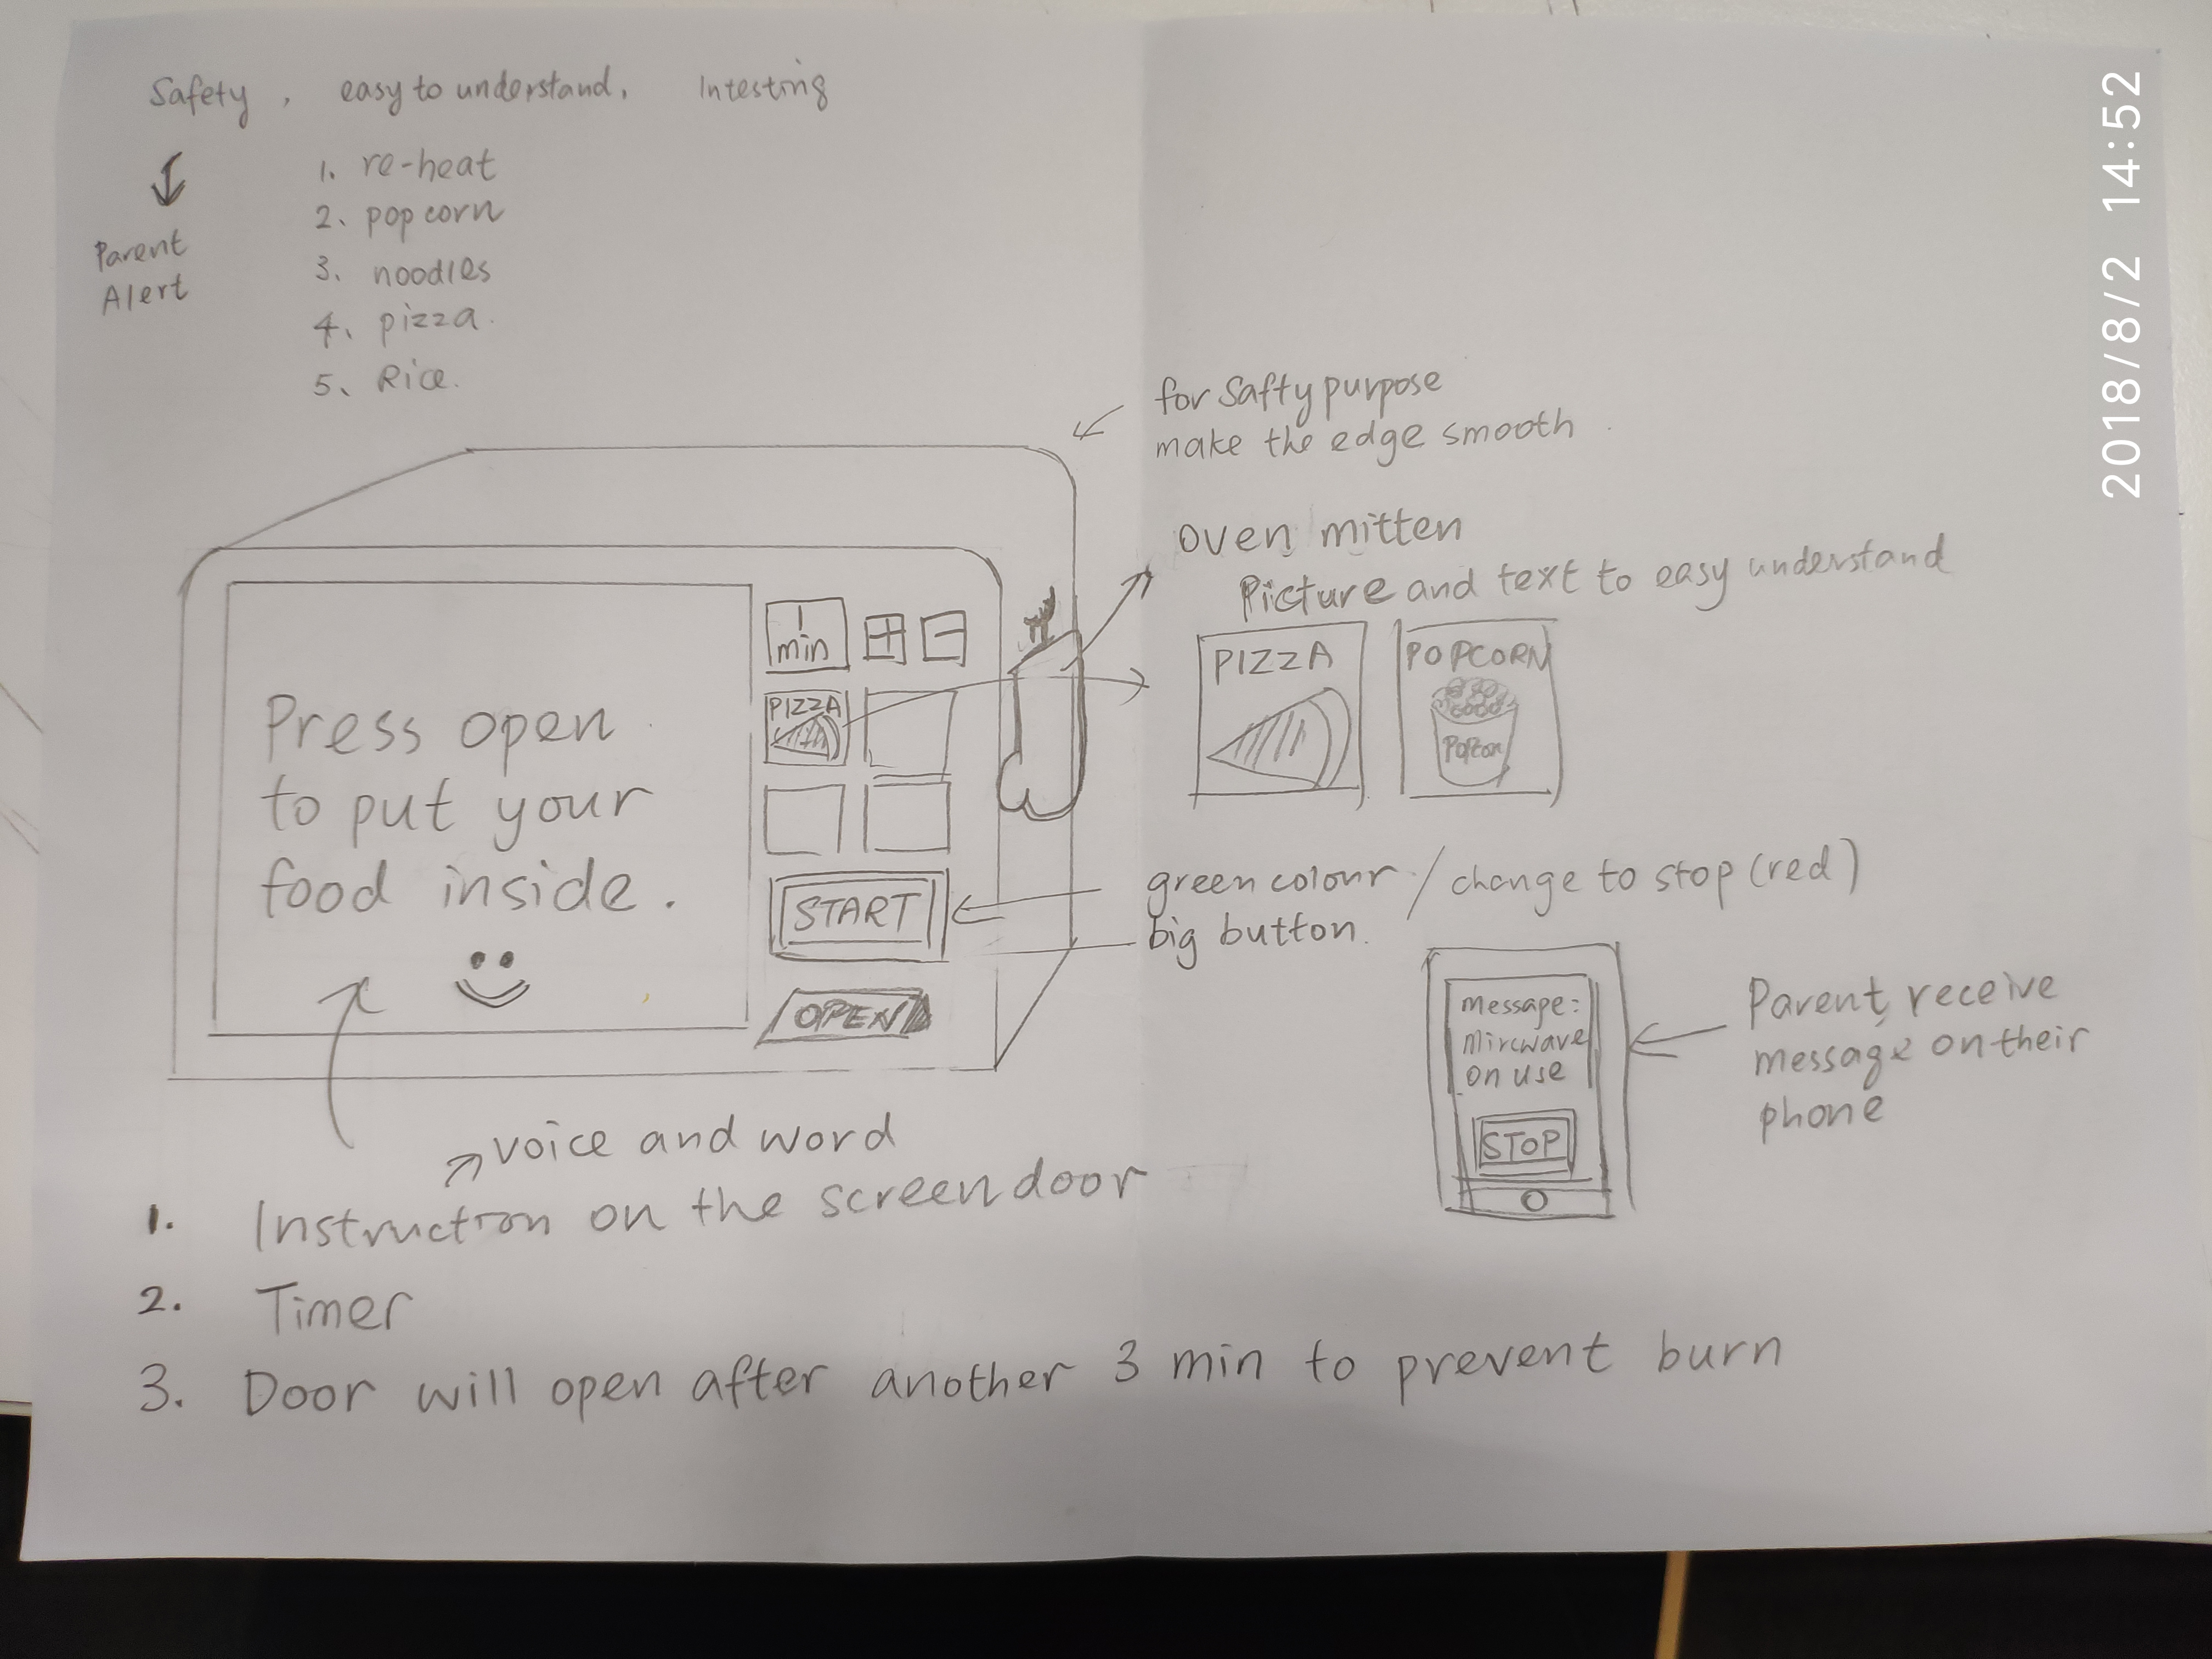 Safety, easy to understand, Intesting
Parent
Alert
1. re-heat
2. popcorn
3. noodles
4. pizza.
5. Rice.
for Safty purpose
make the edge smooth
oven mitten
Picture and text to easy understand
PIZZA
POPCORN
Popcon
1
min
+
-
PIZZA
Press open
to put your
food inside.
START
OPEN
green colour / change to stop (red)
big button.
message:
Mircwave
on use
STOP
Parent receive
message on their
phone
voice and word
1. Instruction on the screen door
2. Timer
3. Door will open after another 3 min to prevent burn
2018/8/2 14:52